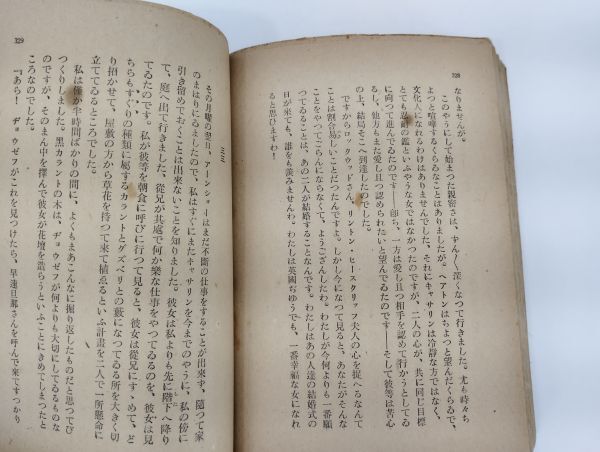 328
なりませんが。
このやうにして始まつた親密さは、ずんずん深くなつて行きました。尤も時々ち
よつと喧嘩するくらゐなことはありましたが。ヘアトンはちよつと望んだくらゐで、
文化人になれるわけはありませんでした、それにキャサリンは冷靜な方ではなく、
とても忍耐の鑑といふやうな女ではなかつたのですが、二人の心が、共に同じ目標
に向つて進んでゐたのです――卽ち、一方は愛し且つ相手を認めて行かうとしてゐ
るし、他方もまた愛し且つ認められたいと望んでゐたのです――そして彼等は苦心
の上、結局そこへ到達したのでした。
ですからロックウッドさん、リントン・ヒースクリッフ夫人の心を捉へるなんて
ことは割合易しいことだつたんですよ。しかし今になつて見ると、あなたがそんな
ことをやつてごらんにならなくて、ようございましたわ。わたしが今何よりも一番願
つてゐることは、あの二人が結婚することなんです。わたしはあの人達の結婚式の
日が來ても、誰をも羨みませんわ。わたしは英國ぢゆうでも、一番幸福な女になれ
ると思ひますわ!
329
三三
その月曜の翌日、アーンショーはまだ不斷の仕事をすることが出來ず、隨つて家
のまはりにゐましたので、私はすぐにまたキャサリンを今までのやうに、私の傍に
引き留めておくことは出來ないことを知りました。彼女は私よりも先に階下へ降り
て、庭へ出て行きました、從兄が其處で何か樂な仕事をやつてゐるのを、彼女は見
てゐたのです。私が彼等を朝食に呼びに行つて見ると、彼女は從兄にすゝめて、ど
ちらもすぐりの種類に屬するカラントとグズベリとの藪になつてゐる所を大きく切
り招かせて、屋敷の方から草花を持つて來て植ゑるといふ計畫を二人で一所懸命に
立ててゐるところでした。
私は僅か半時間ばかりの間に、よくもまあこんなに掘り返したものだと思つてび
つくりしました。黑カラントの木は、ヂョウゼフが何よりも大切にしてゐるものな
のですが、そのまん中を擇んで彼女が花壇を造らうといふことにきめてしまつたと
ころなのでした。
『あら! ヂョウゼフがこれを見つけたら、早速旦那さんを呼んで來てすつかり